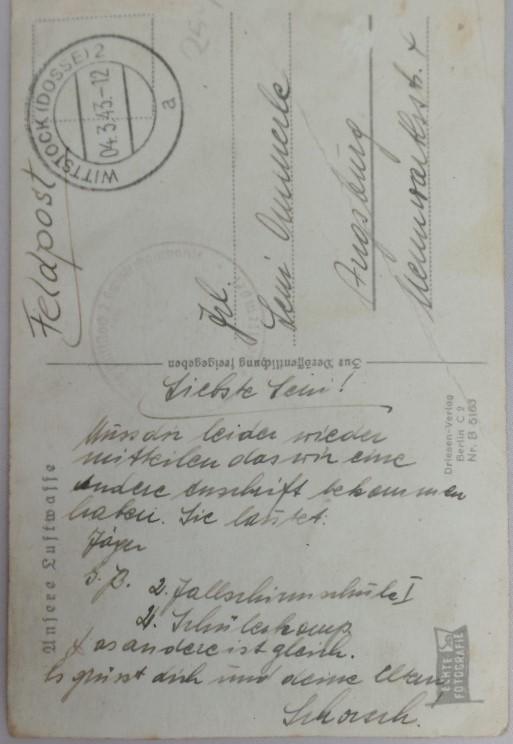 Feldpost
WITTSTOCK (DOSSE) 2
04.3.43.-12
a
Frl.
Leni Ammerle
Augsburg
Zur Veröffentlichung freigegeben
Unsere Luftwaffe
Driesen-Verlag
Berlin C 2
Nr. B 5163
ECHTE
FOTOGRAFIE
Liebste Leni!
Muss dir leider wieder
mitteilen das wir eine
andere Anschrift bekommen
haben. Sie lautet:
Jäger
z. Z. 2. Fallschirmschule I
2. Schülerkomp
das andere ist gleich.
Es grüsst dich und deine Eltern
Schorsch.